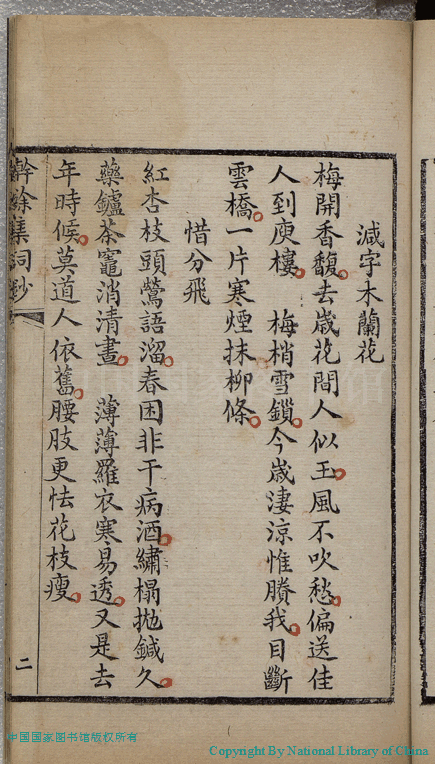 減字木蘭花
梅開香馥。去歲花間人似玉。風不吹愁。偏送佳
人到庾樓。　梅梢雪鎖。今歲淒涼惟賸我。目斷
雲橋。一片寒煙抹柳條。
惜分飛
紅杏枝頭鶯語溜。春困非干病酒。繡榻拋鍼久。
藥鑪茶竈消清晝。　薄薄羅衣寒易透。又是去
年時候。莫道人依舊。腰肢更怯花枝瘦。
餘集詞鈔
二
中国国家图书馆版权所有
Copyright By National Library of China